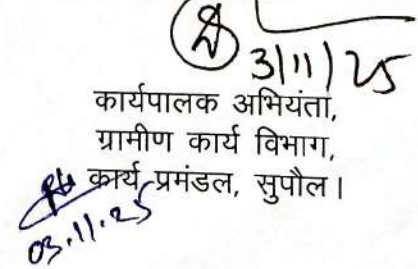 3/11/25
कार्यपालक अभियंता,
ग्रामीण कार्य विभाग,
कार्य प्रमंडल, सुपौल।
03.11.25